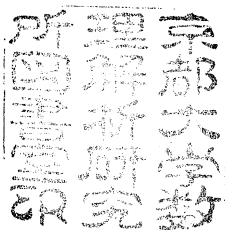 京都大学数
理解析研究
所圖書印